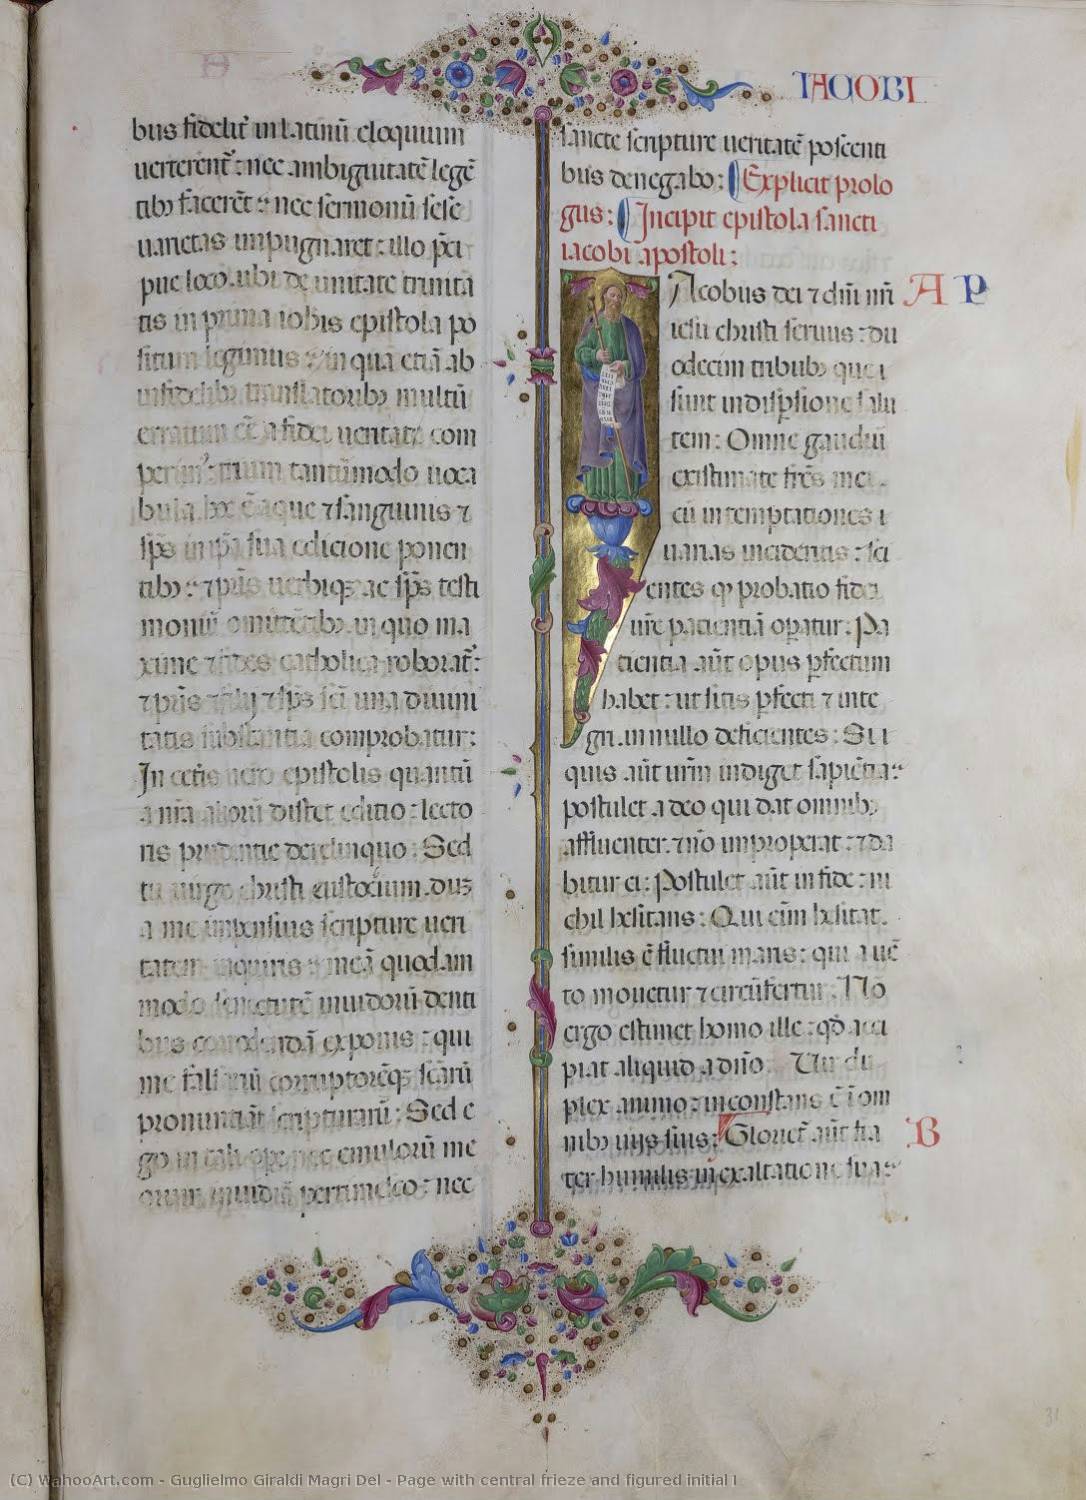 IACOBI
bus fidelit̃ in latinũ eloquium
uerterent̃: nec ambiguitatẽ legẽ
tibꝫ facerẽt: nec sermonũ sese
uarietas impugnaret: illo p̃ci
pue loco. ubi de unitate trinita
tis in prima iohis epistola po
situm legimus: in qua etiã ab
infidelibꝫ translatoribꝫ multũ
erratum ẽẽ a fidei ueritate com
perim᷒: trium tantũmodo uoca
bula hoc ẽ aque ⁊ sanguinis ⁊
sp̃s in ip̃a sua edicione ponen
tibꝫ: ⁊ pr̃is uerbiqꝫ ac sp̃s testi
moniũ omittẽtibꝫ. in quo ma
xime ⁊ fides catholica roborat̃:
⁊ pr̃is ⁊ filij ⁊ sp̃s sc̃i una diuini
tatis substantia comprobatur:
In ceteris uero epistolis quantũ
a nr̃a aliorũ distet editio: lecto
ris prudentie derelinquo: Sed
tu uirgo christi eustochium. dum
a me impensius scripture ueri
tatem inquiris: meã quodam
modo senectutẽ inuidorũ denti
bus corrodendã exponis: qui
me falsariũ corruptorẽqꝫ scãrũ
pronunciãt scripturarũ: Sed e
go in tali ope nec emulorũ me
orum inuidiã pertimesco: nec
sancte scripture ueritatẽ poscenti
bus denegabo: Explicit prolo
gus: Incipit epistola sancti
iacobi apostoli:
Acobus dei ⁊ dñi nr̃i A P
iesu christi seruus: du
odecim tribubꝫ que i
sunt in disp̃sione salu
tem: Omne gaudiũ
existimate fr̃es mei.
cũ in temptationes i
uarias incideritis: sci
entes qꝫ probatio fidei
ur̃e pacientiã op̃atur. Pa
tientia aũt opus p̃fectum
habet: ut sitis p̃fecti ⁊ inte
gri. in nullo deficientes: Si i
quis aũt ur̃m indiget sapiẽtia:
postulet a deo qui dat omnibꝫ
affluenter: ⁊ nõ improperat: ⁊ da
bitur ei: Postulet aũt in fide: ni
chil hesitans: Qui eñm hesitat.
similis ẽ fluctui maris: qui a uẽ
to mouetur ⁊ circũfertur. Nõ
ergo estimet homo ille: qd̃ acci
piat aliquid a dño. Vir du
plex animo: inconstans ẽ ĩ om
nibꝫ uijs suis: Gloriet̃ aũt fra B
ter humilis in exaltatione sua:
31
(C) WahooArt.com - Guglielmo Giraldi Magri Del - Page with central frieze and figured initial I